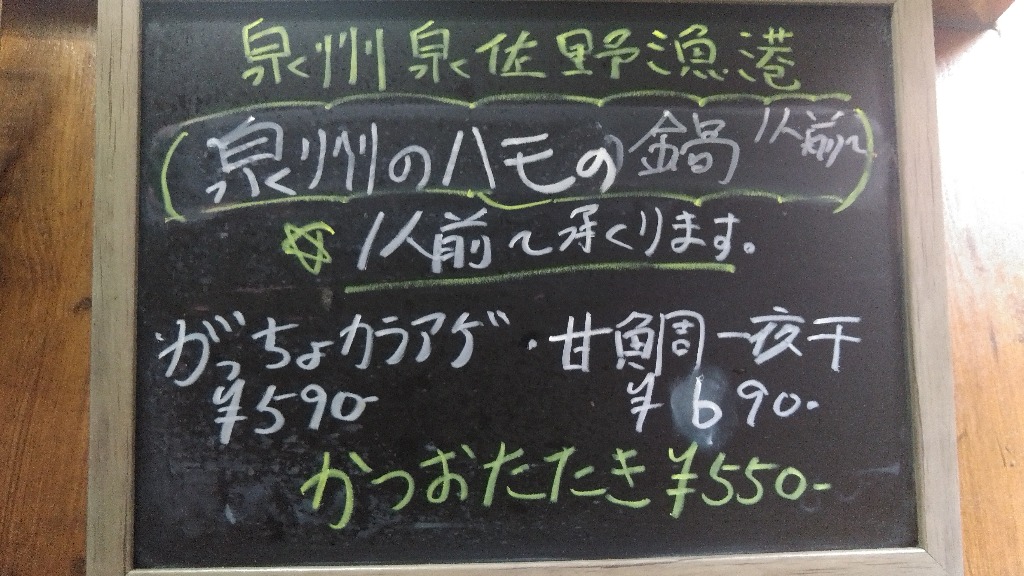 泉州泉佐野漁港
泉州のハモの鍋 1人前〜
☆ 1人前〜承くります。
がっちょカラアゲ ・甘鯛一夜干
¥590- ¥690-
かつおたたき¥550-